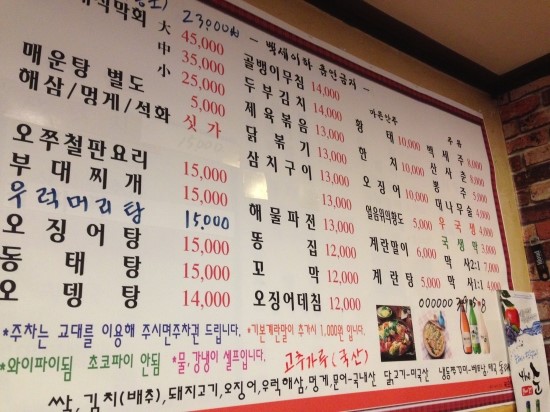 23,000
막회 大 45,000
中 35,000
小 25,000
매운탕 별도 5,000
해삼/멍게/석화 싯가
오쭈철판요리 15,000
부대찌개 15,000
우럭머리탕 15,000
오징어탕 15,000
동태탕 15,000
오뎅탕 14,000
*주차는 교대를 이용해 주시면주차권 드립니다.
*와이파이됨 초코파이 안됨
*물,강냉이 셀프입니다.
- 백세이하 흡연금지 -
골뱅이무침 14,000
두부김치 14,000
제육볶음 13,000
닭볶기 13,000
삼치구이 13,000
해물파전 13,000
똥집 12,000
꼬막 12,000
오징어데침 12,000
*기본계란말이 추가시 1,000원 입니다.
고추가루(국산)
마른안주
황태 10,000
한치 10,000
오징어 10,000
얼음위의황도 5,000
계란말이 6,000
계란탕 5,000
주류
백세주 8,000
산사춘 8,000
뽕주 5,000
대나무술 4,000
우국생 4,000
국생막 3,000
막사2:1 7,000
막사1:1 4,000
쌀,김치(배추),돼지고기,오징어,우럭해삼,멍게,문어-국내산 닭고기-미국산